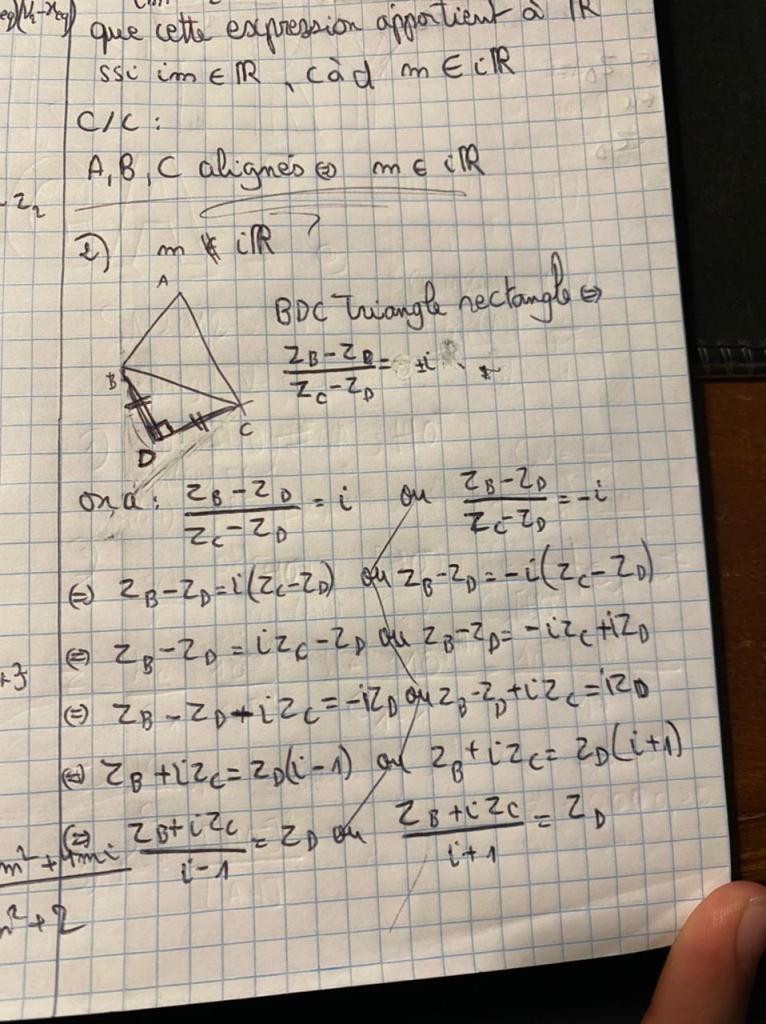 que cette expression appartient à ℝ
ssi im ∈ ℝ, càd m ∈ iℝ
C/C :
A, B, C alignés ⇔ m ∈ iℝ
- z₂
2) m ∉ iℝ
A
B
D
C
BDC Triangle rectangle ⇔
(z_B - z_D)/(z_C - z_D) = ±i
on a : (z_B - z_D)/(z_C - z_D) = i ou (z_B - z_D)/(z_C - z_D) = -i
⇔ z_B - z_D = i(z_C - z_D) ou z_B - z_D = -i(z_C - z_D)
⇔ z_B - z_D = iz_C - z_D ou z_B - z_D = -iz_C + iz_D
+3
⇔ z_B - z_D + iz_C = -iz_D ou z_B - z_D + iz_C = iz_D
⇔ z_B + iz_C = z_D(i-1) ou z_B + iz_C = z_D(i+1)
⇔ (z_B + iz_C)/(i-1) = z_D ou (z_B + iz_C)/(i+1) = z_D
m² + 4mi
² + 2